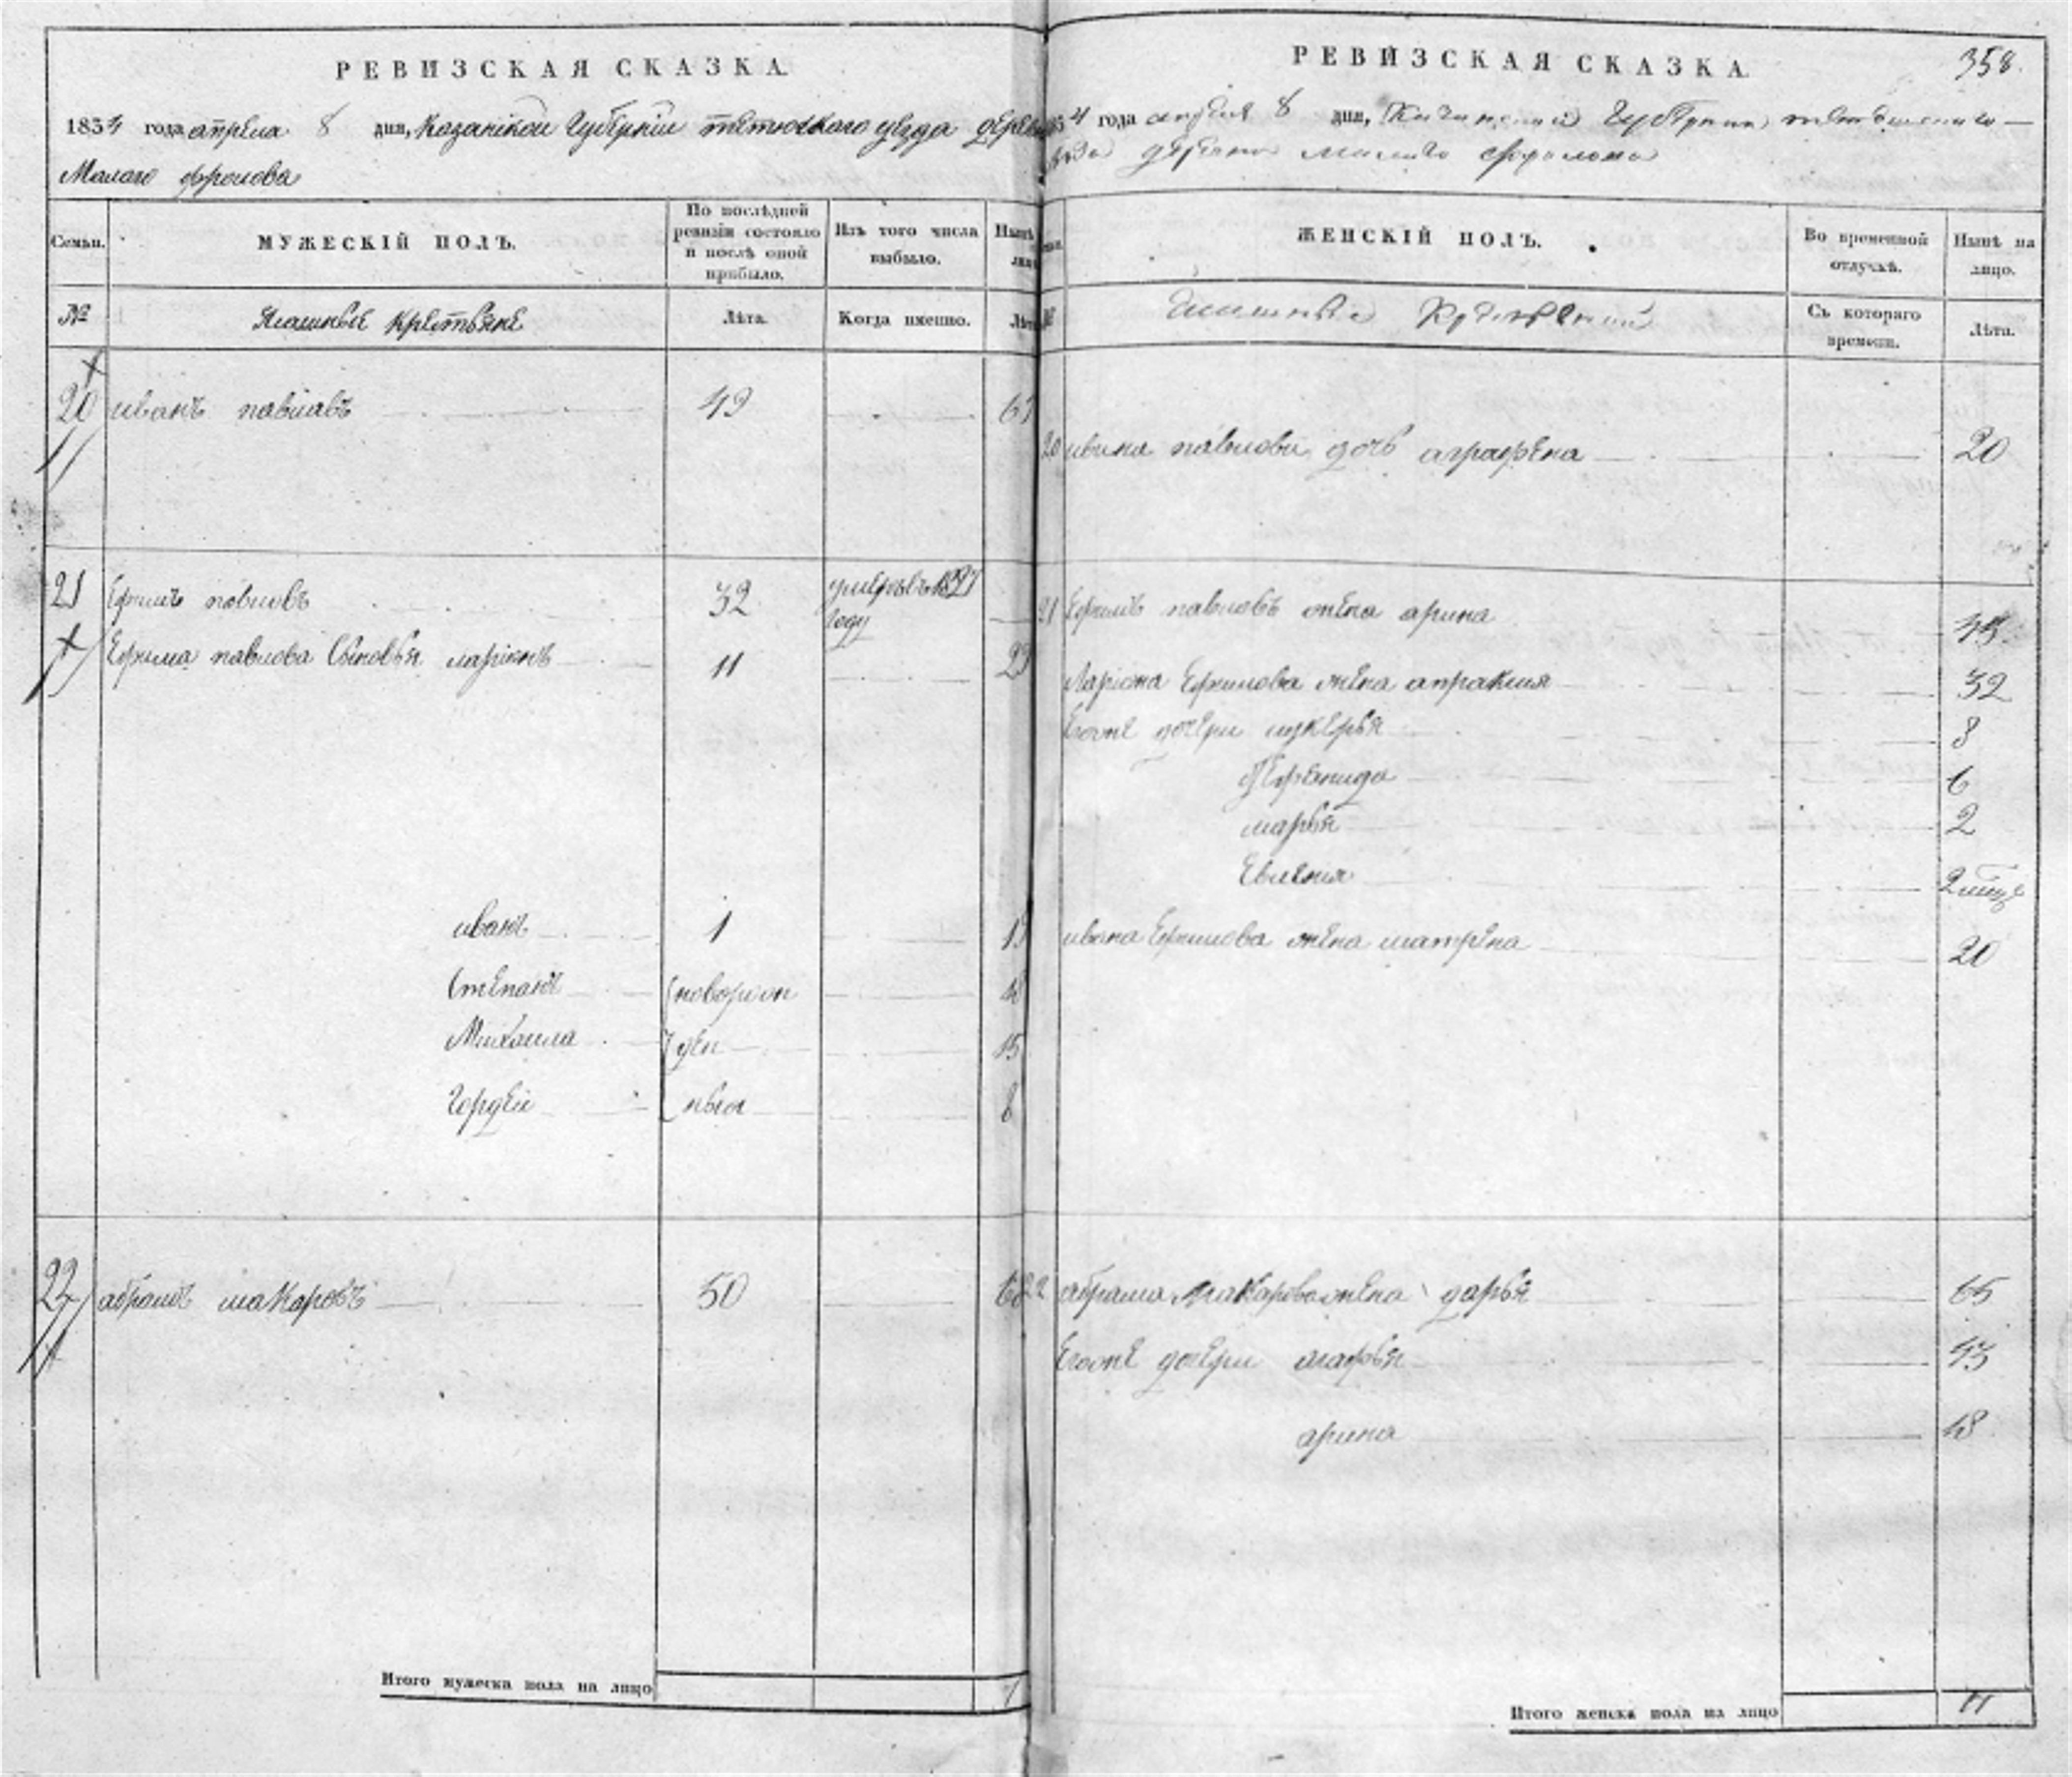 РЕВИЗСКАЯ СКАЗКА
1834 года апреля 8 дня, Казанской Губернии тетюскаго уезда дерев
Малаго фролова
Семьи.
МУЖЕСКІЙ ПОЛЪ.
По послѣдней ревизіи состояло и послѣ оной прибыло.
Изъ того числа выбыло.
Нынѣ
№
Крестьяне
Лѣта.
Когда именно.
Лѣт
20 иванъ павлавъ 49
21 Ефимъ павловъ 32 году
Ефима павлова Сыновья ларіонъ 11
иванъ 1
Степанъ новорож
Михаила 15 ден
Гордеи ныя 8
22 абрамъ макаровъ 50
Итого мужеска пола на лицо 7
РЕВИЗСКАЯ СКАЗКА
358.
4 года апреля 8 дня, Казанской Губернии
деревни малаго фролова
ЖЕНСКІЙ ПОЛЪ.
Во временной отлучкѣ.
Нынѣ на лицо.
№
Съ котораго времени.
Лѣта.
20 ивана павлова дочь аграфена 20
21 Ефимъ павловъ жена арина
Ларіона Ефимова жена апраксия 32
Егоже дочери лукерья 8
6
марья 2
Евгения
ивана Ефимова жена матрена 20
22 абрама макарова жена дарья 65
Егоже дочери марфа
арина 18
Итого женска пола на лицо 11